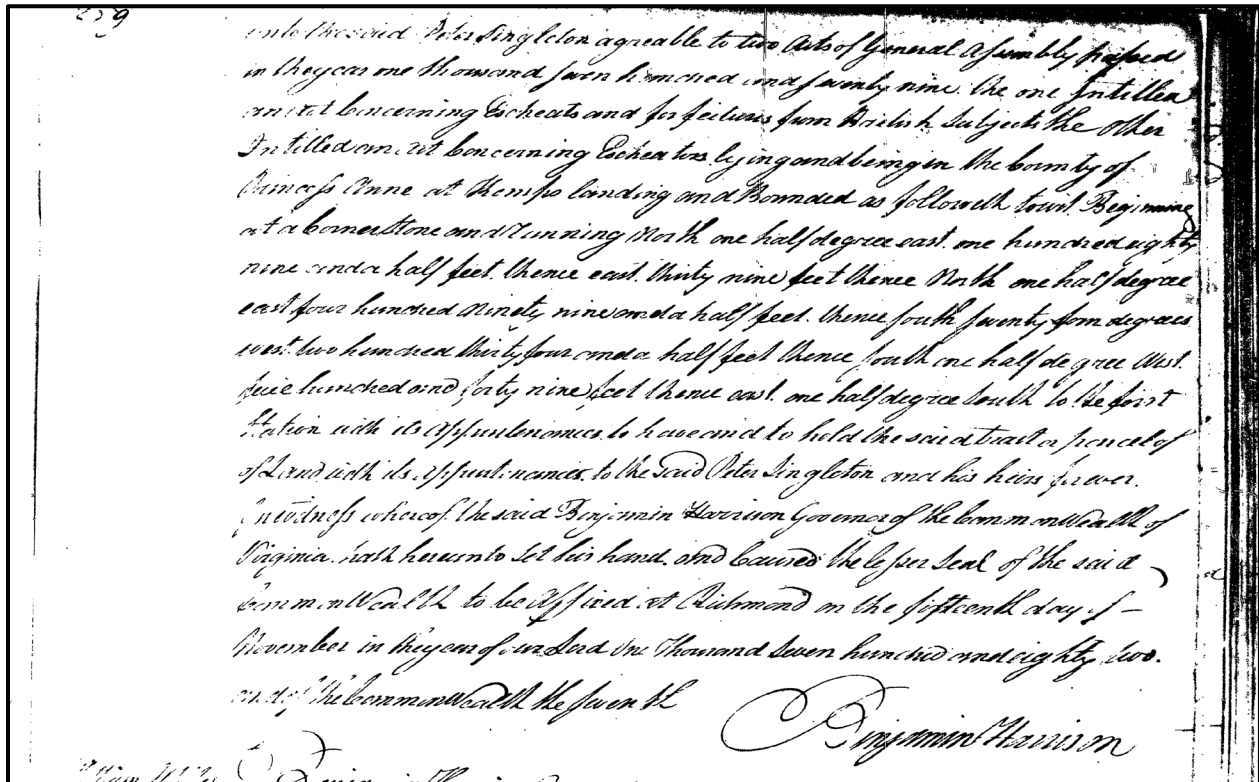 259
unto the said Peter Singleton agreable to two Acts of General Assembly passed
in the year one thousand seven hundred and seventy nine the one Intitled
an act Concerning Escheats and forfeitures from British Subjects the other
Intitled an Act Concerning Escheators lying and being in the County of
Princess Anne at Kemps landing and Bounded as followeth towit Beginning
at a Corner Stone and Running North one half degree east one hundred eighty
nine and a half feet thence east thirty nine feet thence North one half degree
east four hundred Ninety nine and a half feet thence south seventy four degrees
west two hundred thirty four and a half feet thence south one half degree West
five hundred and forty nine feet thence east one half degree South to the first
Station with its appurtenances to have and to hold the said tract or parcel of
of Land with its appurtenances to the said Peter Singleton and his heirs forever
In witness whereof the said Benjamin Harrison Governor of the Common Wealth of
Virginia hath hereunto Set his hand and Caused the lesser Seal of the said
Common Wealth to be Affixed at Richmond on the fifteenth day of
November in the year of our Lord One Thousand Seven hundred and eighty two
and of the Common Wealth the seventh
Benjamin Harrison